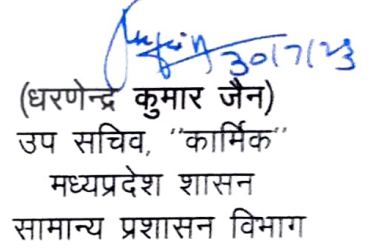 30/7/23
(धरणेन्द्र कुमार जैन)
उप सचिव, "कार्मिक"
मध्यप्रदेश शासन
सामान्य प्रशासन विभाग